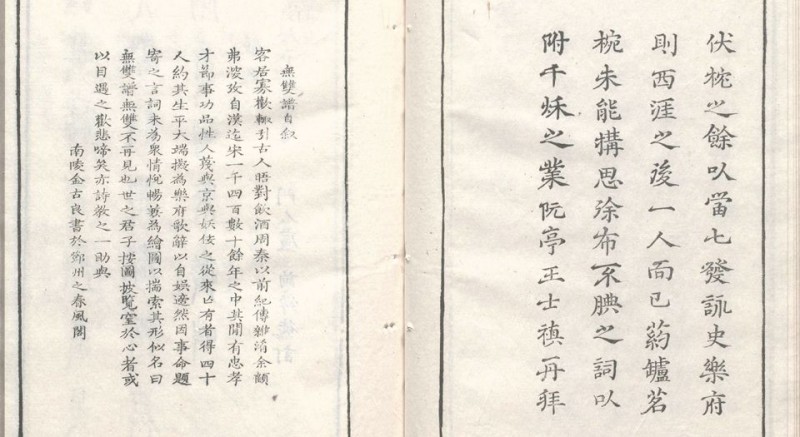 伏枕之餘以當七發詠史樂府
則西涯之後一人而已葯罏茗
椀未能搆思涂布不腆之詞以
附千秌之業阮亭王士禛再拜
無雙譜自叙
客居寡歡輙引古人晤對飲酒周秦以前紀傳雜淆余頗
弗深攷自漢迄宋一千四百數十餘年之中其間有忠孝
才節事功品性人莫與京與妖佞之從來亡有者得四十
人約其生平大端擬為樂府歌辭以自娛然因事命題
寄之言詞未為衆情悅暢兼為繪圖以揣索其形似名曰
無雙譜無雙不再見也世之君子按圖披覽窒於心者或
以目遇之歡悲啼笑亦詩敎之一助與
南陵金古良書於鄭州之春風閣